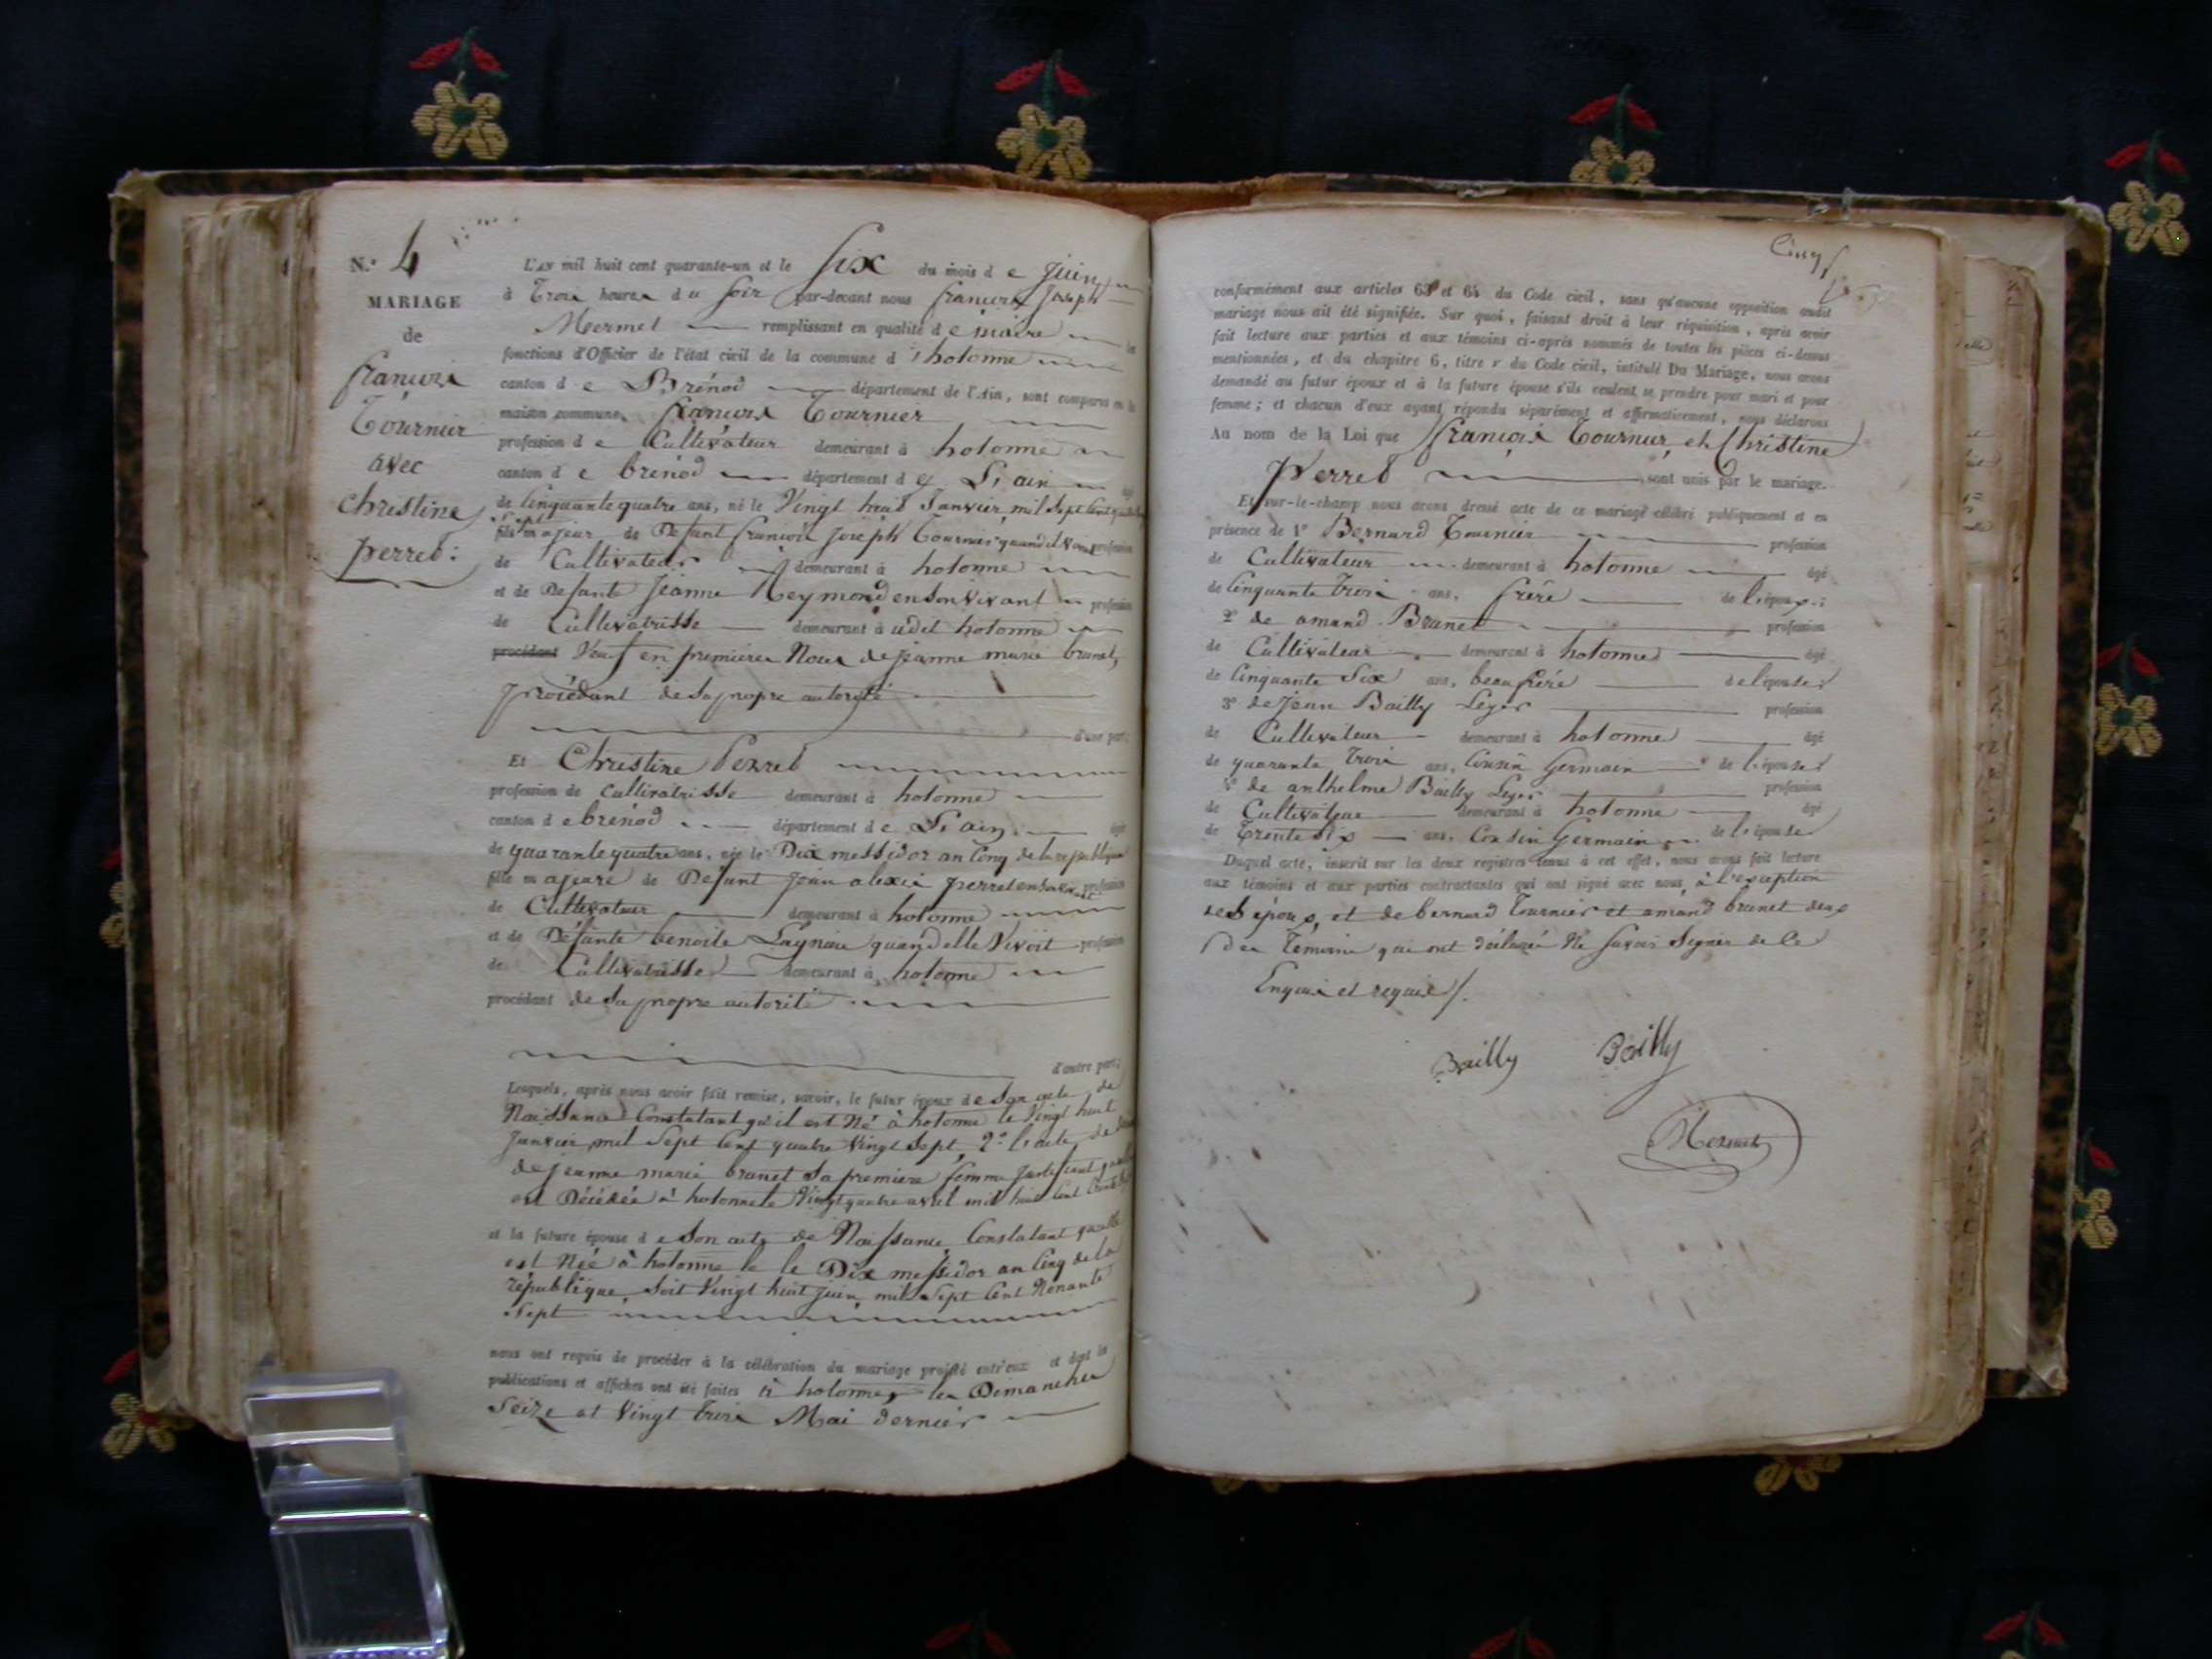 N.° 4
MARIAGE
de
francois
Tournier
avec
christine
perret:
L'AN mil huit cent quarante-un et le Six du mois d e Juin
à Trois heures d u soir par-devant nous francois Joseph
Mermet remplissant en qualité d e maire les
fonctions d'Officier de l'état civil de la commune d' hotonne
canton d e Brénod département de l'Ain, sont comparus en la
maison commune, francois Tournier
profession d e Cultivateur demeurant à hotonne
canton d e brénod département d e L'ain âgé
de Cinquante quatre ans, né le Vingt huit Janvier mil Sept Cent quatre
Sept
fils majeur de Défunt francois Joseph Tournier quand il vivoit profession
de Cultivateur demeurant à hotonne
et de Défunte Jeanne Reymond en Son Vivant profession
de Cultivatrisse demeurant à udit hotonne
procédant Veuf en premieres Noces de jeanne marie brunet,
procédant de Sa propre autorité
d'une part;
Et Christine Perret
profession de Cultivatrisse demeurant à hotonne
canton d e brénod département d e L'ain âgé
de quarante quatre ans, née le Dix messidor an Cinq de la republique
fille majeure de Défunt Jean alexis perret en Son vivant profession
de Cultivateur demeurant à hotonne
et de Défunte benoite Lagneu quand elle Vivoit profession
de Cultivatrisse demeurant à hotonne
procédant de Sa propre autorité
d'autre part;
Lesquels, après nous avoir fait remise, savoir, le futur époux d e Son acte de
Naissance Constatant qu'il est Né à hotonne le Vingt huit
Janvier mil Sept Cent quatre Vingt Sept, 2.° l'acte de
de jeanne marie brunet Sa premiere femme Justifiant qu'elle
est Décédée à hotonne le Vingt quatre avril mil huit Cent
et la future épouse d e Son acte de Naissance Constatant qu'elle
est Née à hotonne le le Dix messidor an Cinq de la
république Soit Vingt huit juin mil Sept Cent Nonante
Sept
nous ont requis de procéder à la célébration du mariage projeté entr'eux et dont les
publications et affiches ont été faites à hotonne, les Dimanches
Seize et Vingt trois Mai dernier
conformément aux articles 63 et 64 du Code civil, sans qu'aucune opposition audit
mariage nous ait été signifiée. Sur quoi, faisant droit à leur réquisition, après avoir
fait lecture aux parties et aux témoins ci-après nommés de toutes les pièces ci-dessus
mentionnées, et du chapitre 6, titre v du Code civil, intitulé Du Mariage, nous avons
demandé au futur époux et à la future épouse s'ils veulent se prendre pour mari et pour
femme; et chacun d'eux ayant répondu séparément et affirmativement, nous déclarons
Au nom de la Loi que francois Tournier, et Christine
Perret sont unis par le mariage.
Et sur-le-champ nous avons dressé acte de ce mariage célébré publiquement et en
présence de 1° Bernard Tournier profession
de Cultivateur demeurant à hotonne âgé
de Cinquante trois ans, frère de l'époux;
2° de amand Brunet profession
de Cultivateur demeurant à hotonne âgé
de Cinquante Six ans, beau frère de l'épouse;
3° de Jean Bailly Leger profession
de Cultivateur demeurant à hotonne âgé
de quarante trois ans, Cousin Germain de l'épouse;
4° de anthelme Bailly Leger profession
de Cultivateur demeurant à hotonne âgé
de Trente Six ans, Cousin Germain de l'épouse
Duquel acte, inscrit sur les deux registres tenus à cet effet, nous avons fait lecture
aux témoins et aux parties contractantes qui ont signé avec nous, à l'exception
des époux, et de bernard Tournier et amand brunet deux
des Temoins qui ont déclaré Ne Savoir Signer de Ce
Enquis et requis /.
Bailly Bailly
Mermet